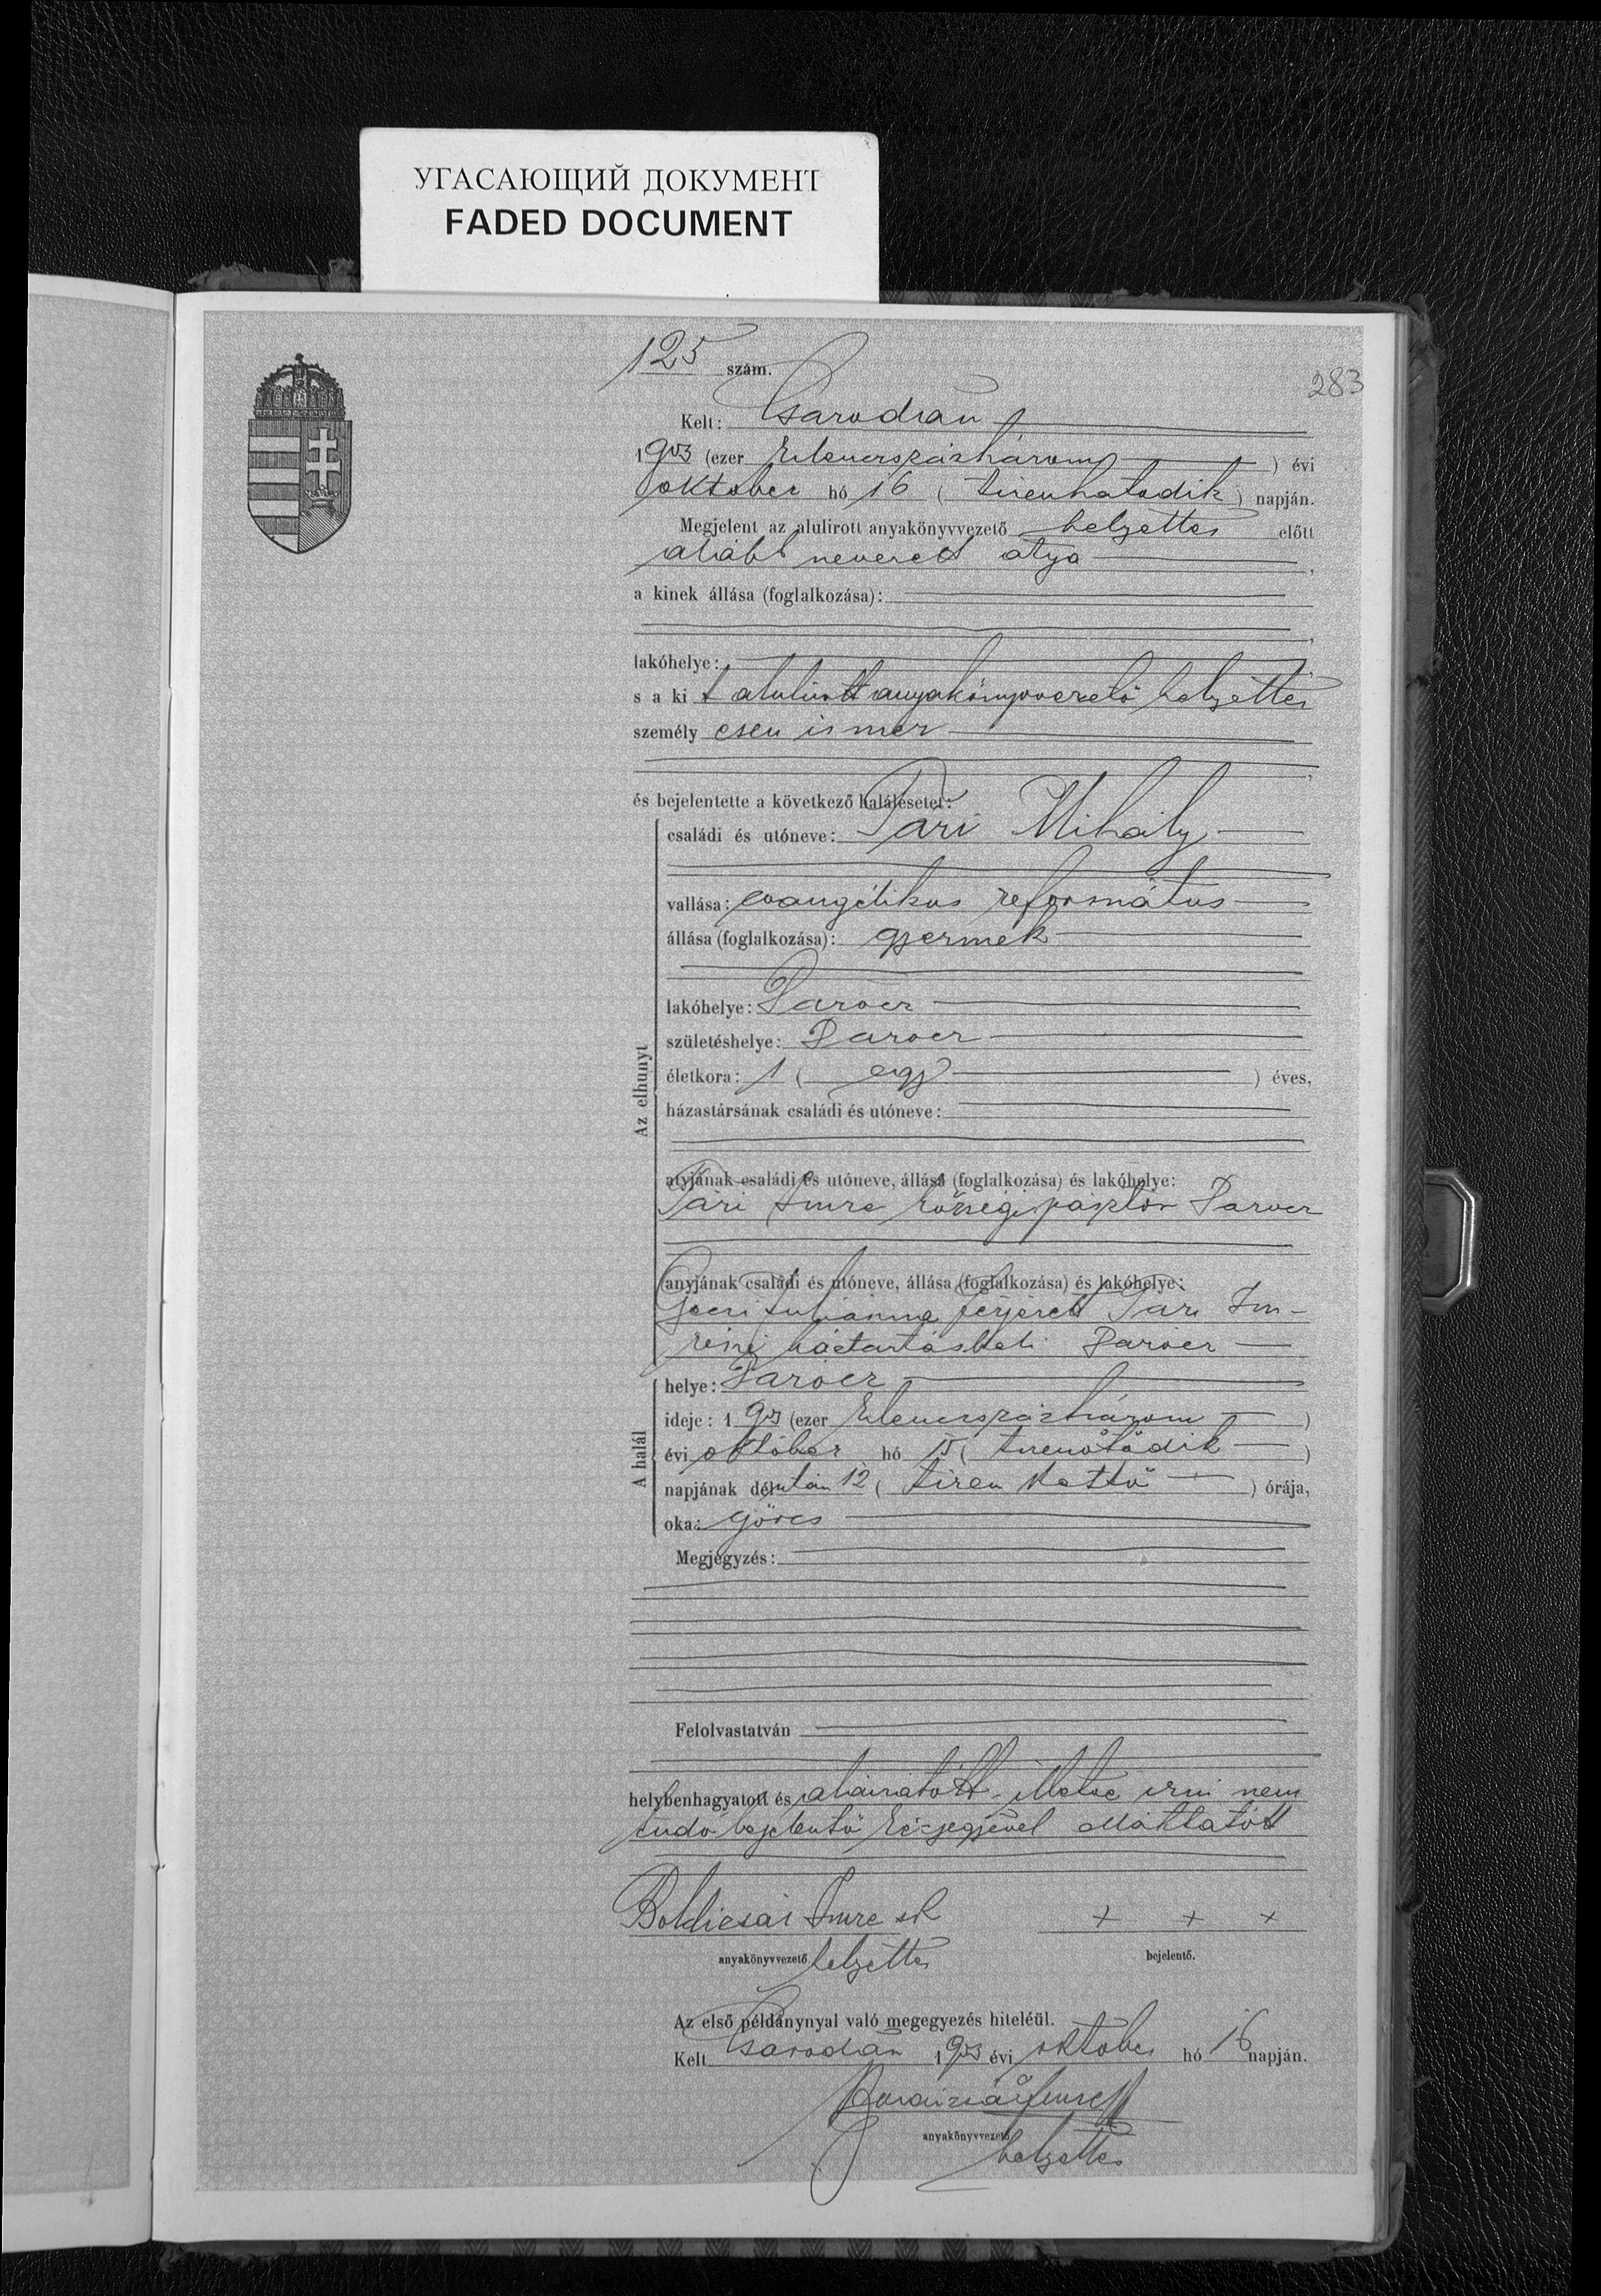 УГАСАЮЩИЙ ДОКУМЕНТ
FADED DOCUMENT
125 szám.
283
Kelt: Csarodán
1903 (ezer kilenczszázhárom) évi
október hó 16 (tizenhatodik) napján.
Megjelent az alulirott anyakönyvvezető helyettes előtt
alább nevezett atya,
a kinek állása (foglalkozása):
lakóhelye:
s a ki t alulirott anyakönyvvezető helyettes
személy esen ismer
és bejelentette a következő halálesetet:
Az elhunyt
családi és utóneve: Pari Mihály
vallása: evangélikus református
állása (foglalkozása): gyermek
lakóhelye:
születéshelye:
életkora: 1 (egy) éves,
házastársának családi és utóneve:
atyjának családi és utóneve, állása (foglalkozása) és lakóhelye:
Pári Imre községi pásztor
anyjának családi és utóneve, állása (foglalkozása) és lakóhelye:
Juliánna férjezett Pari Im-
réné háztartásbeli
A halál
helye:
ideje: 1903 (ezer kilenczszázhárom)
évi október hó 15 (tizenötödik)
napjának délután 12 (tizen kettő) órája,
oka: görcs
Megjegyzés:
Felolvastatván
helybenhagyatott és aláiratott illetve irni nem
tudó bejelentő kézjegyével elláttatott
Boldizsár Imre sk
+ + +
anyakönyvvezető helyettes
bejelentő.
Az első példánynyal való megegyezés hiteléül.
Kelt Csarodán 1903 évi október hó 16 napján.
Boldizsár Imre
anyakönyvvezető
helyettes